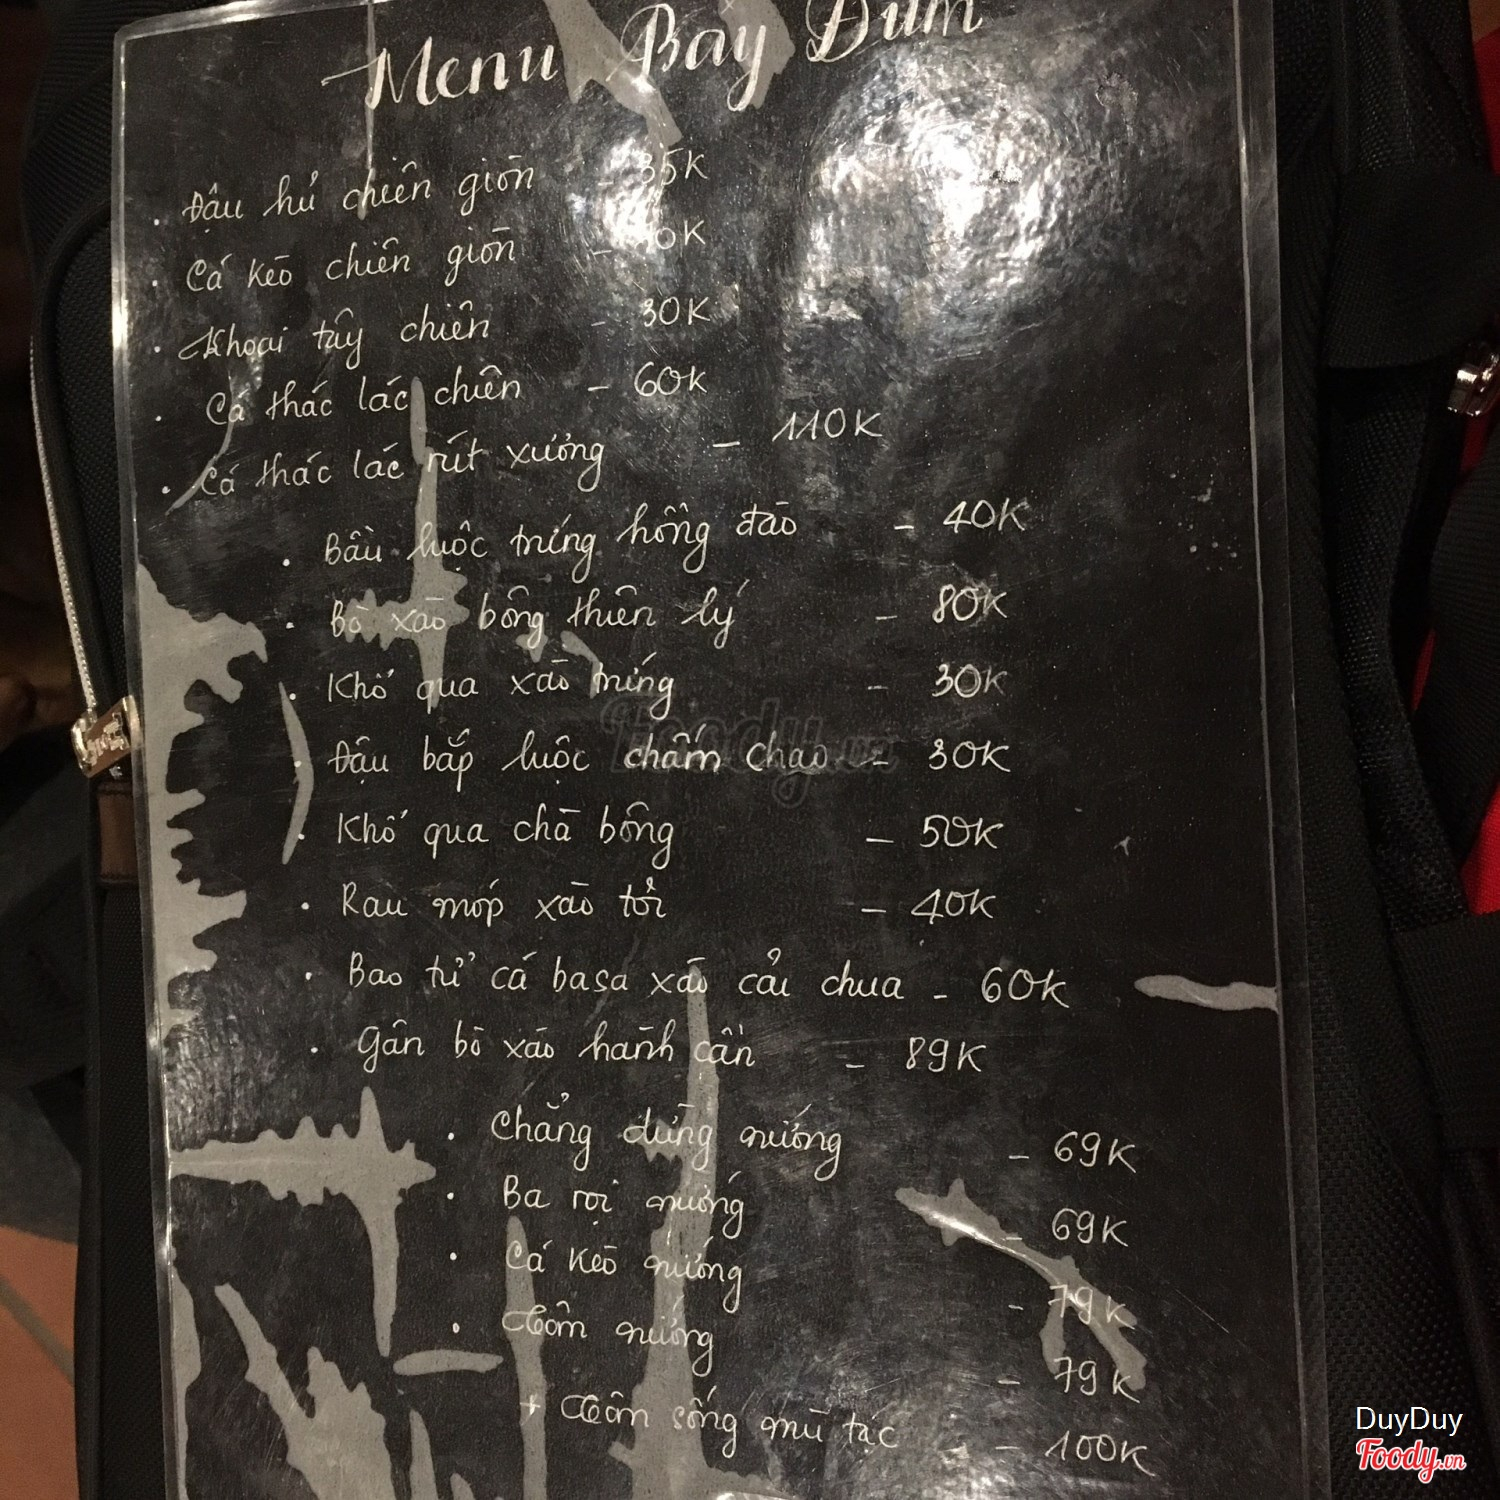 Menu Bảy Đúm
. Đậu hủ chiên giòn - 35K
. Cá kèo chiên giòn -
. Khoai tây chiên - 30K
. Cá thác lác chiên - 60K
. Cá thác lác rút xương - 110K
. Bầu luộc trứng hồng đào - 40K
. Bò xào bông thiên lý - 80K
. Khổ qua xào trứng - 30K
. Đậu bắp luộc chấm chao - 30K
. Khổ qua chà bông - 50K
. Rau móp xào tỏi - 40K
. Bao tử cá basa xào cải chua - 60K
. Gân bò xào hành cần - 89K
. Chẳng dừng nướng - 69K
. Ba rọi nướng - 69K
. Cá kèo nướng - 79K
. Tôm nướng - 79K
+ Tôm sống mù tạc - 100K
Foody.vn
DuyDuy
Foody.vn